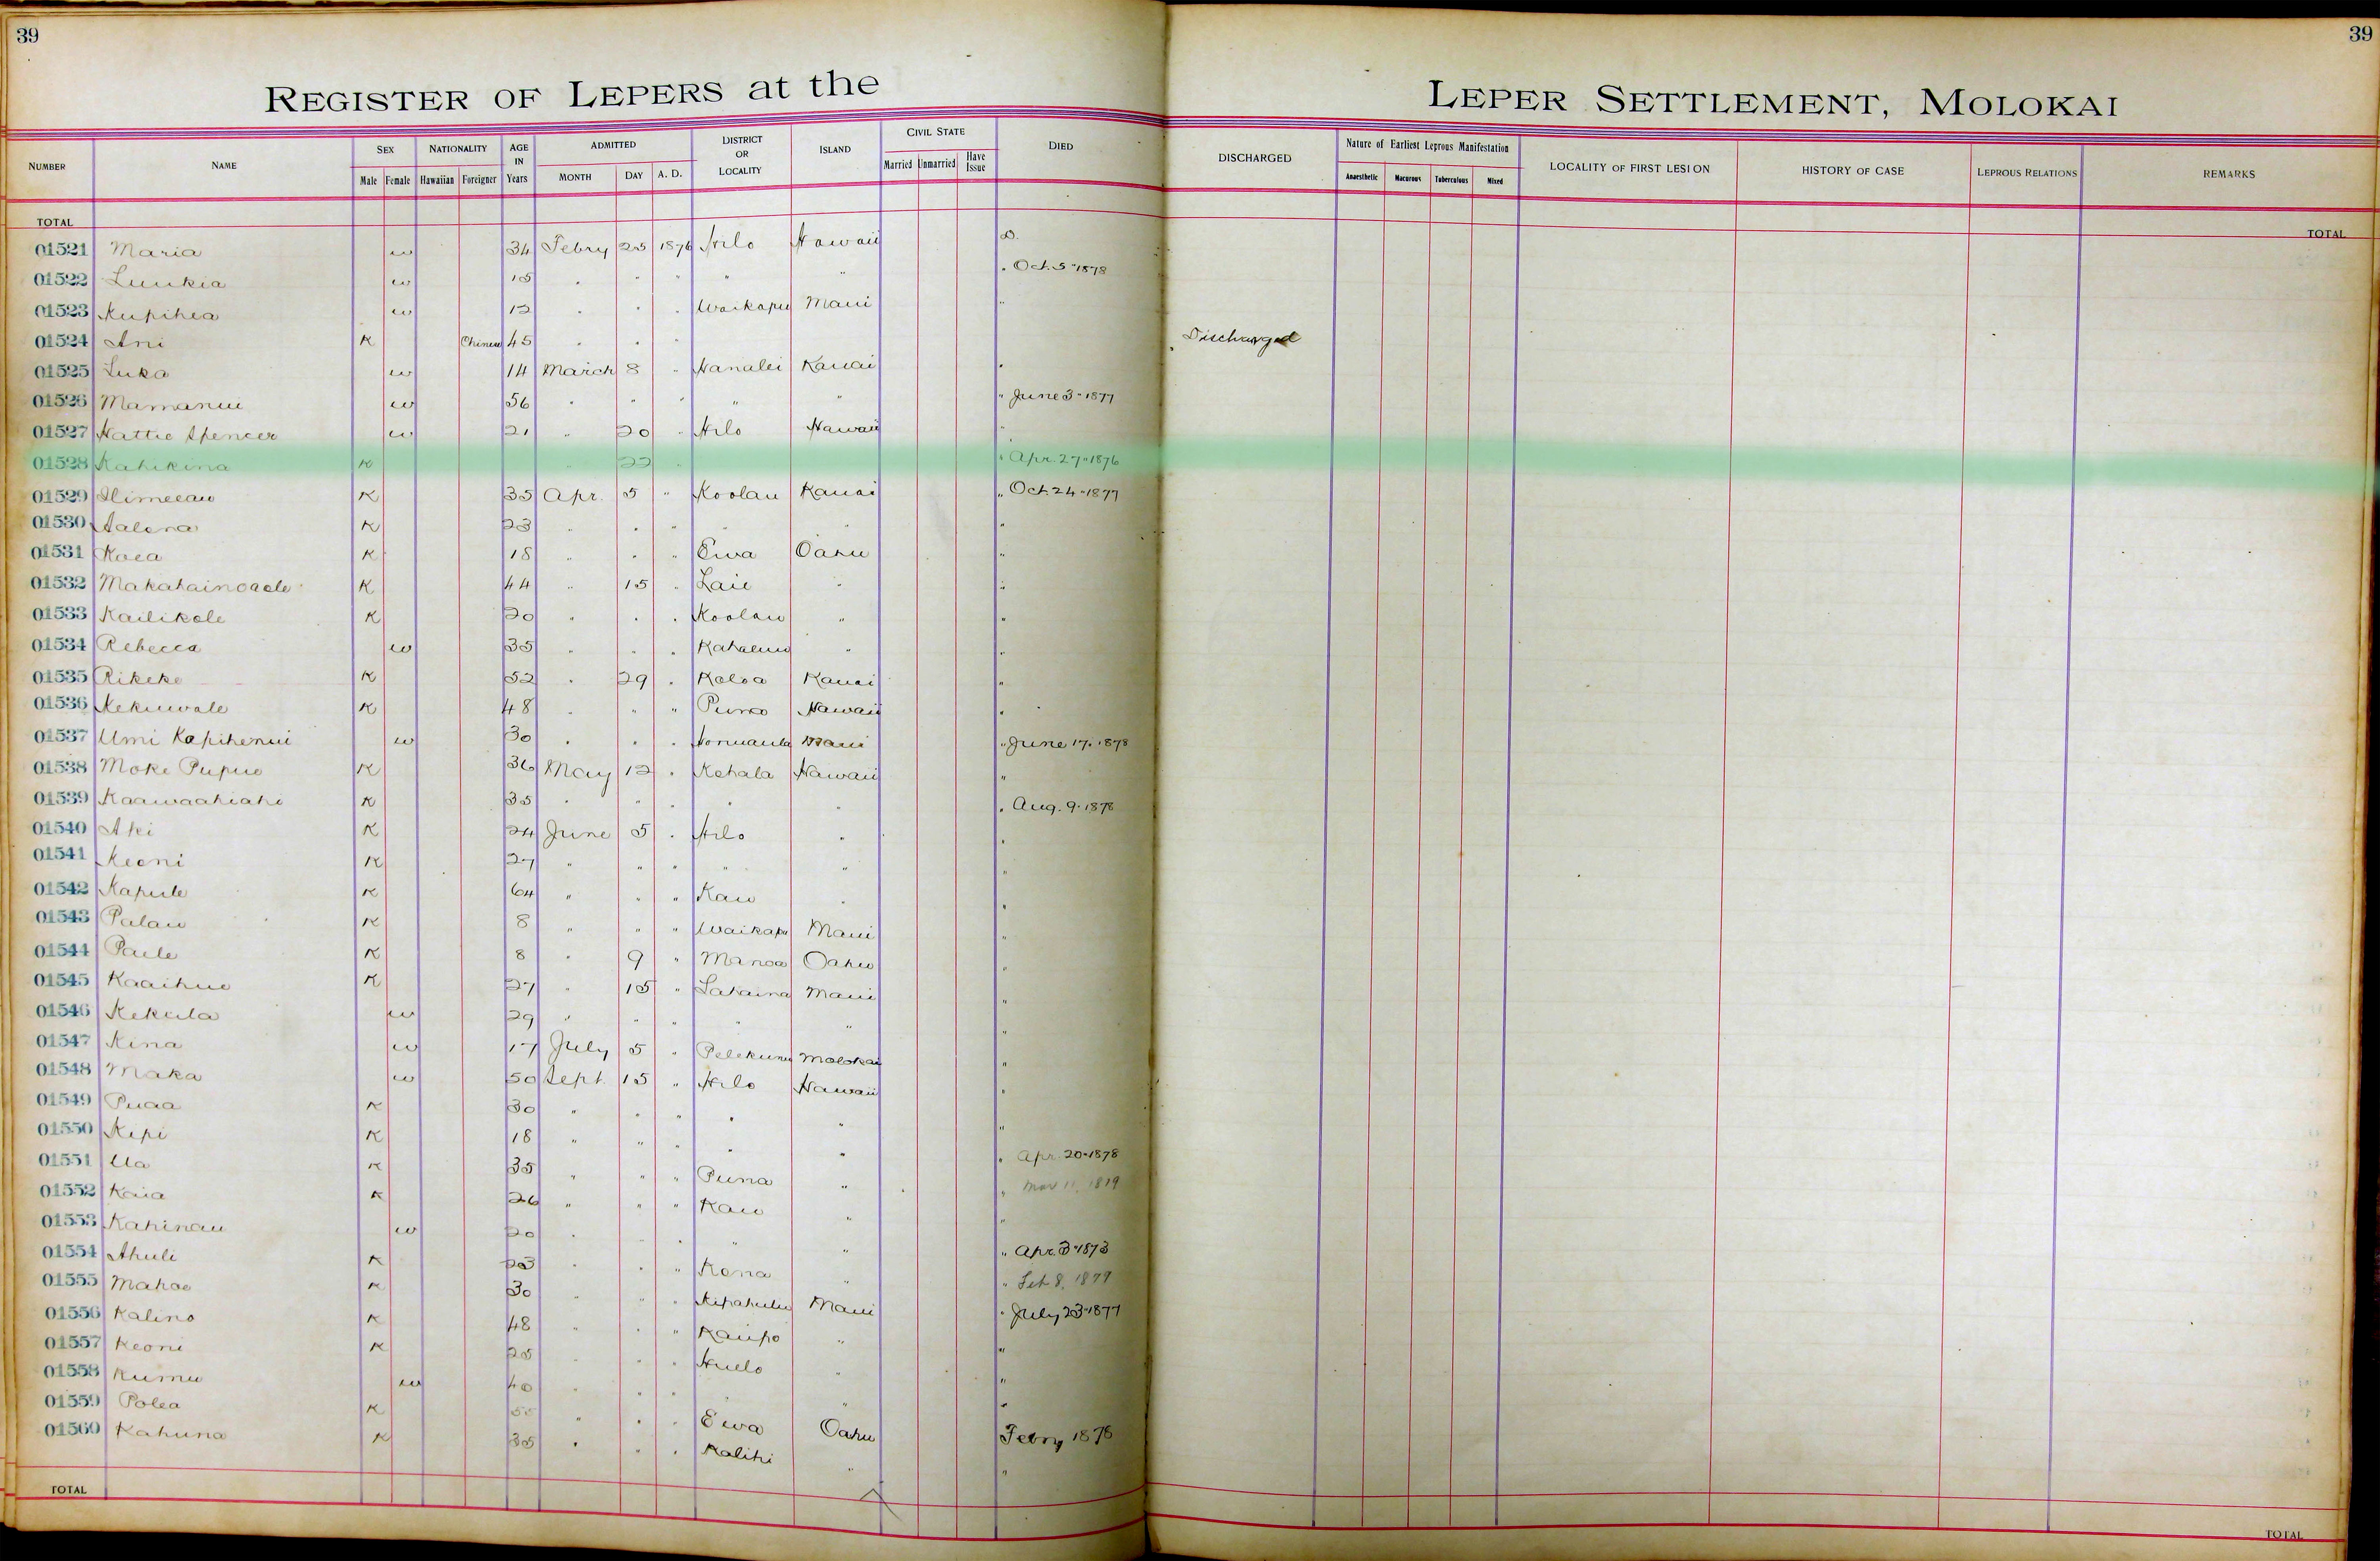 39
39
REGISTER OF LEPERS at the
LEPER SETTLEMENT, MOLOKAI
NUMBER NAME SEX Male Female NATIONALITY Hawaiian Foreigner AGE IN Years ADMITTED MONTH DAY A. D. DISTRICT OR LOCALITY ISLAND CIVIL STATE Married Unmarried Have Issue DIED DISCHARGED Nature of Earliest Leprous Manifestation Anaesthetic Macurous Tuberculous Mixed LOCALITY OF FIRST LESION HISTORY OF CASE LEPROUS RELATIONS REMARKS
TOTAL TOTAL
01521 Maria w 34 Febry 25 1876 Hilo Hawaii D.
01522 Luukia w 15 " " " " " " Oct. 5-1878
01523 Kupihea w 12 " " " Waikapu Maui "
01524 Ani K Chinese 45 " " " Discharged
01525 Luka w 14 March 8 " Hanalei Kauai "
01526 Mamanui w 56 " " " " " " June 3-1877
01527 Hattie Spencer w 21 " 20 " Hilo Hawaii "
01528 Kahikina K " 22 " " Apr. 27-1876
01529 K 35 Apr. 5 " Koolau Kauai " Oct. 24-1877
01530 Aalona K 23 " " " " " "
01531 Koea K 18 " " " Ewa Oahu "
01532 Makahainoaole K 44 " 15 " Laie " "
01533 Kailikole K 20 " " " Koolau " "
01534 Rebecca w 35 " " " Kahaluu " "
01535 Rikeke K 52 " 29 " Koloa Kauai "
01536 Kekuwale K 48 " " " Puna Hawaii "
01537 Umi Kapihenui w 30 " " " Honuaula Maui " June 17-1878
01538 Moke Pupuo K 36 May 12 " Kohala Hawaii "
01539 Kaawaahiahi K 35 " " " " " " Aug. 9-1878
01540 Aki K 24 June 5 " Hilo " "
01541 Keoni K 27 " " " " " "
01542 Kapule K 64 " " " Kau " "
01543 Palau K 8 " " " Waikapu Maui "
01544 Paele K 8 " 9 " Manoa Oahu "
01545 Kaaihue K 27 " 15 " Lahaina Maui "
01546 Kekula w 29 " " " " " "
01547 Kina w 17 July 5 " Pelekunu Molokai "
01548 Maka w 50 Sept. 15 " Hilo Hawaii "
01549 Puaa K 30 " " " " " "
01550 Kepi K 18 " " " " " " Apr. 20-1878
01551 Ua K 35 " " " Puna " " Mar 11, 1819
01552 Kaia K 26 " " " Kau " "
01553 Kahinau w 20 " " " " " " Apr. 3-1873
01554 Ahuli K 23 " " " Kona " " Feb 8, 1879
01555 Mahoe K 30 " " " Kipahulu Maui " July 23-1877
01556 Kalino K 48 " " " Kaupo " "
01557 Keoni K 25 " " " Huelo " "
01558 Kumu w 40 " " " " " "
01559 Polea K 55 " " " Ewa Oahu Febry 1878
01560 Kahuna K 35 " " " Kalihi " "
TOTAL TOTAL